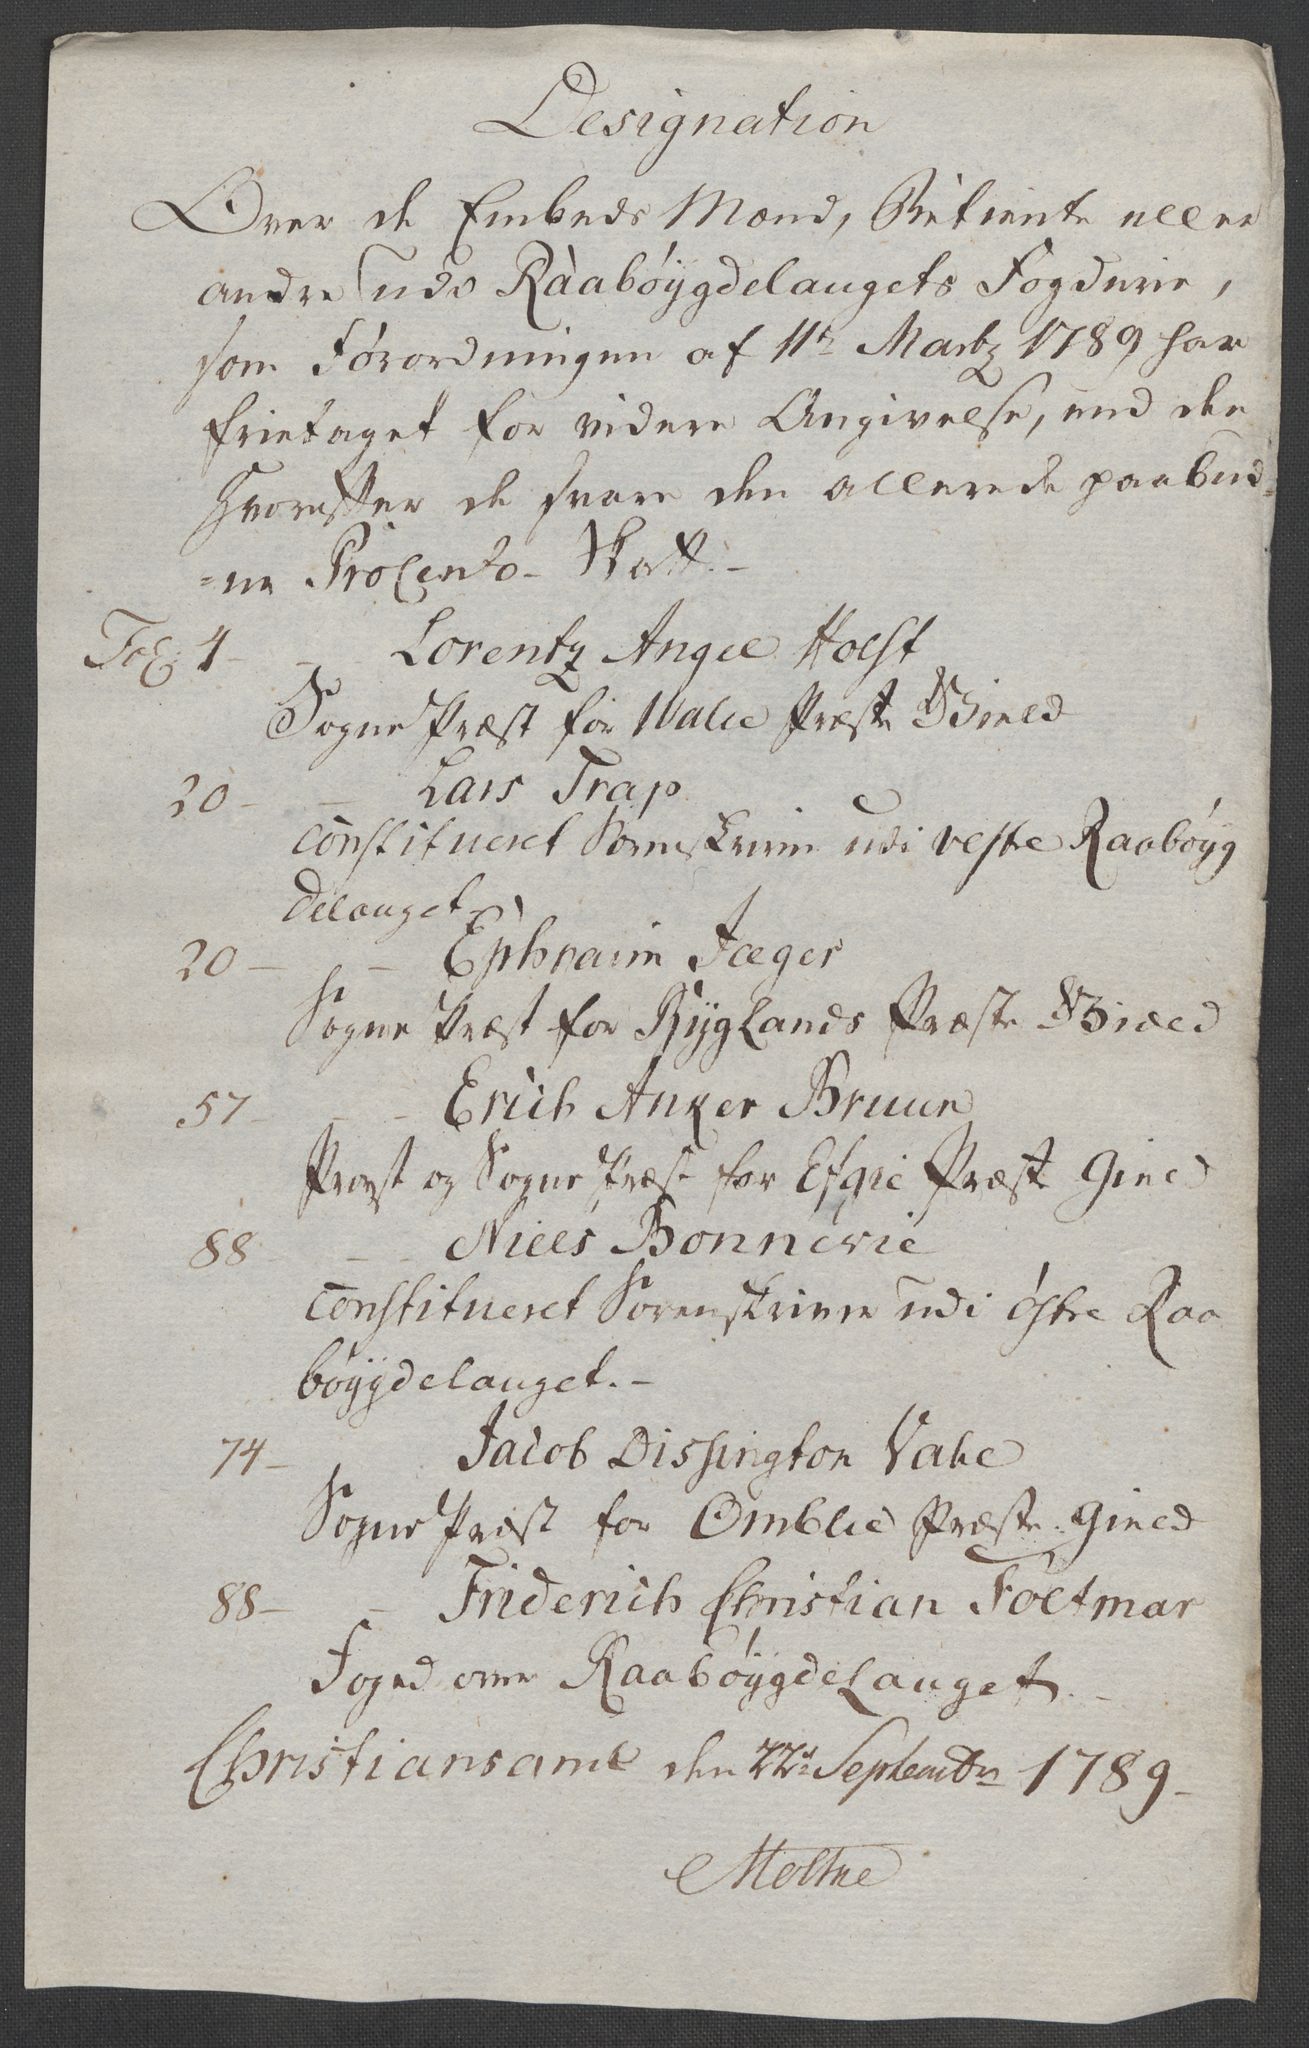 Designation
Over de Embeds Mænd, Betiente eller
andre udi Raabøygdelaugets Fogderie,
som Forordningen af 11te Martz 1789 har
frietaget for videre Angivelse, end den
hvorefter de svare den allerede paabud=
=ne Procento Skatt.-
Fol: 4 - - Lorentz Angel Holst
Sogne Præst for Valle Præste Gield
20 - - Lars Trap
Constitueret Sorenskriver udi vestre Raabøyg
delauget
20 - - Ephraim Jæger
Sogne Præst for Byglands Præste Gield
57 - - Erich Anker Bruun
Provst og Sogne Præst for Efgie Præste Gield
88 - - Niels Bonnevie
Constitueret Sorenskriver udi østre Raa
bøygdelauget.-
74 - Jacob Dissington Vahe
Sogne Præst for Omblie Præste Gield
88 - - Friderich Christian Foltmar
Foged over Raabøygdelauget.-
Christiansamt den 22de Septembr 1789-
Moltke